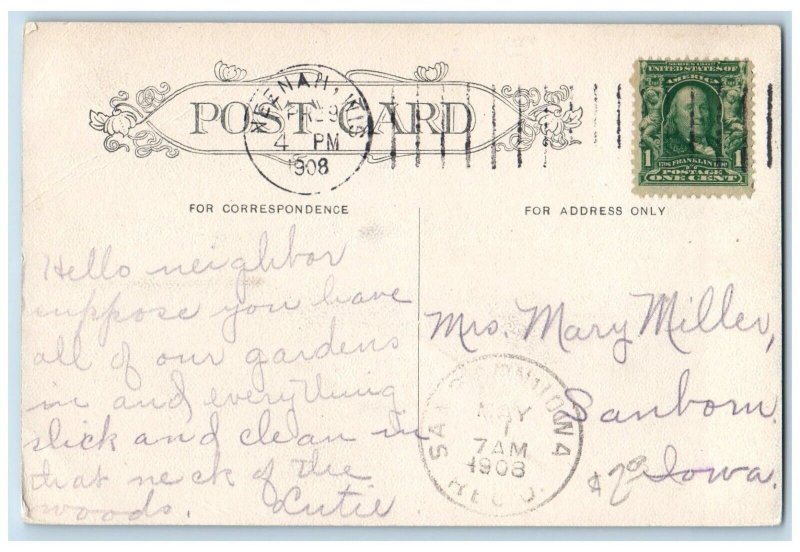 POST CARD
NEENAH, WIS
APR 29
4 PM
1908
SERIES 1902
UNITED STATES OF
AMERICA
1 FRANKLIN 1
POSTAGE
ONE CENT
FOR CORRESPONDENCE
FOR ADDRESS ONLY
Hello neighbor
suppose you have
all of our gardens
in and everything
slick and clean in
that neck of the
woods. Lutie
Mrs. Mary Miller,
Sanborn.
Iowa.
SANBORN IOWA
MAY
1
7 AM
1908
REC'D.